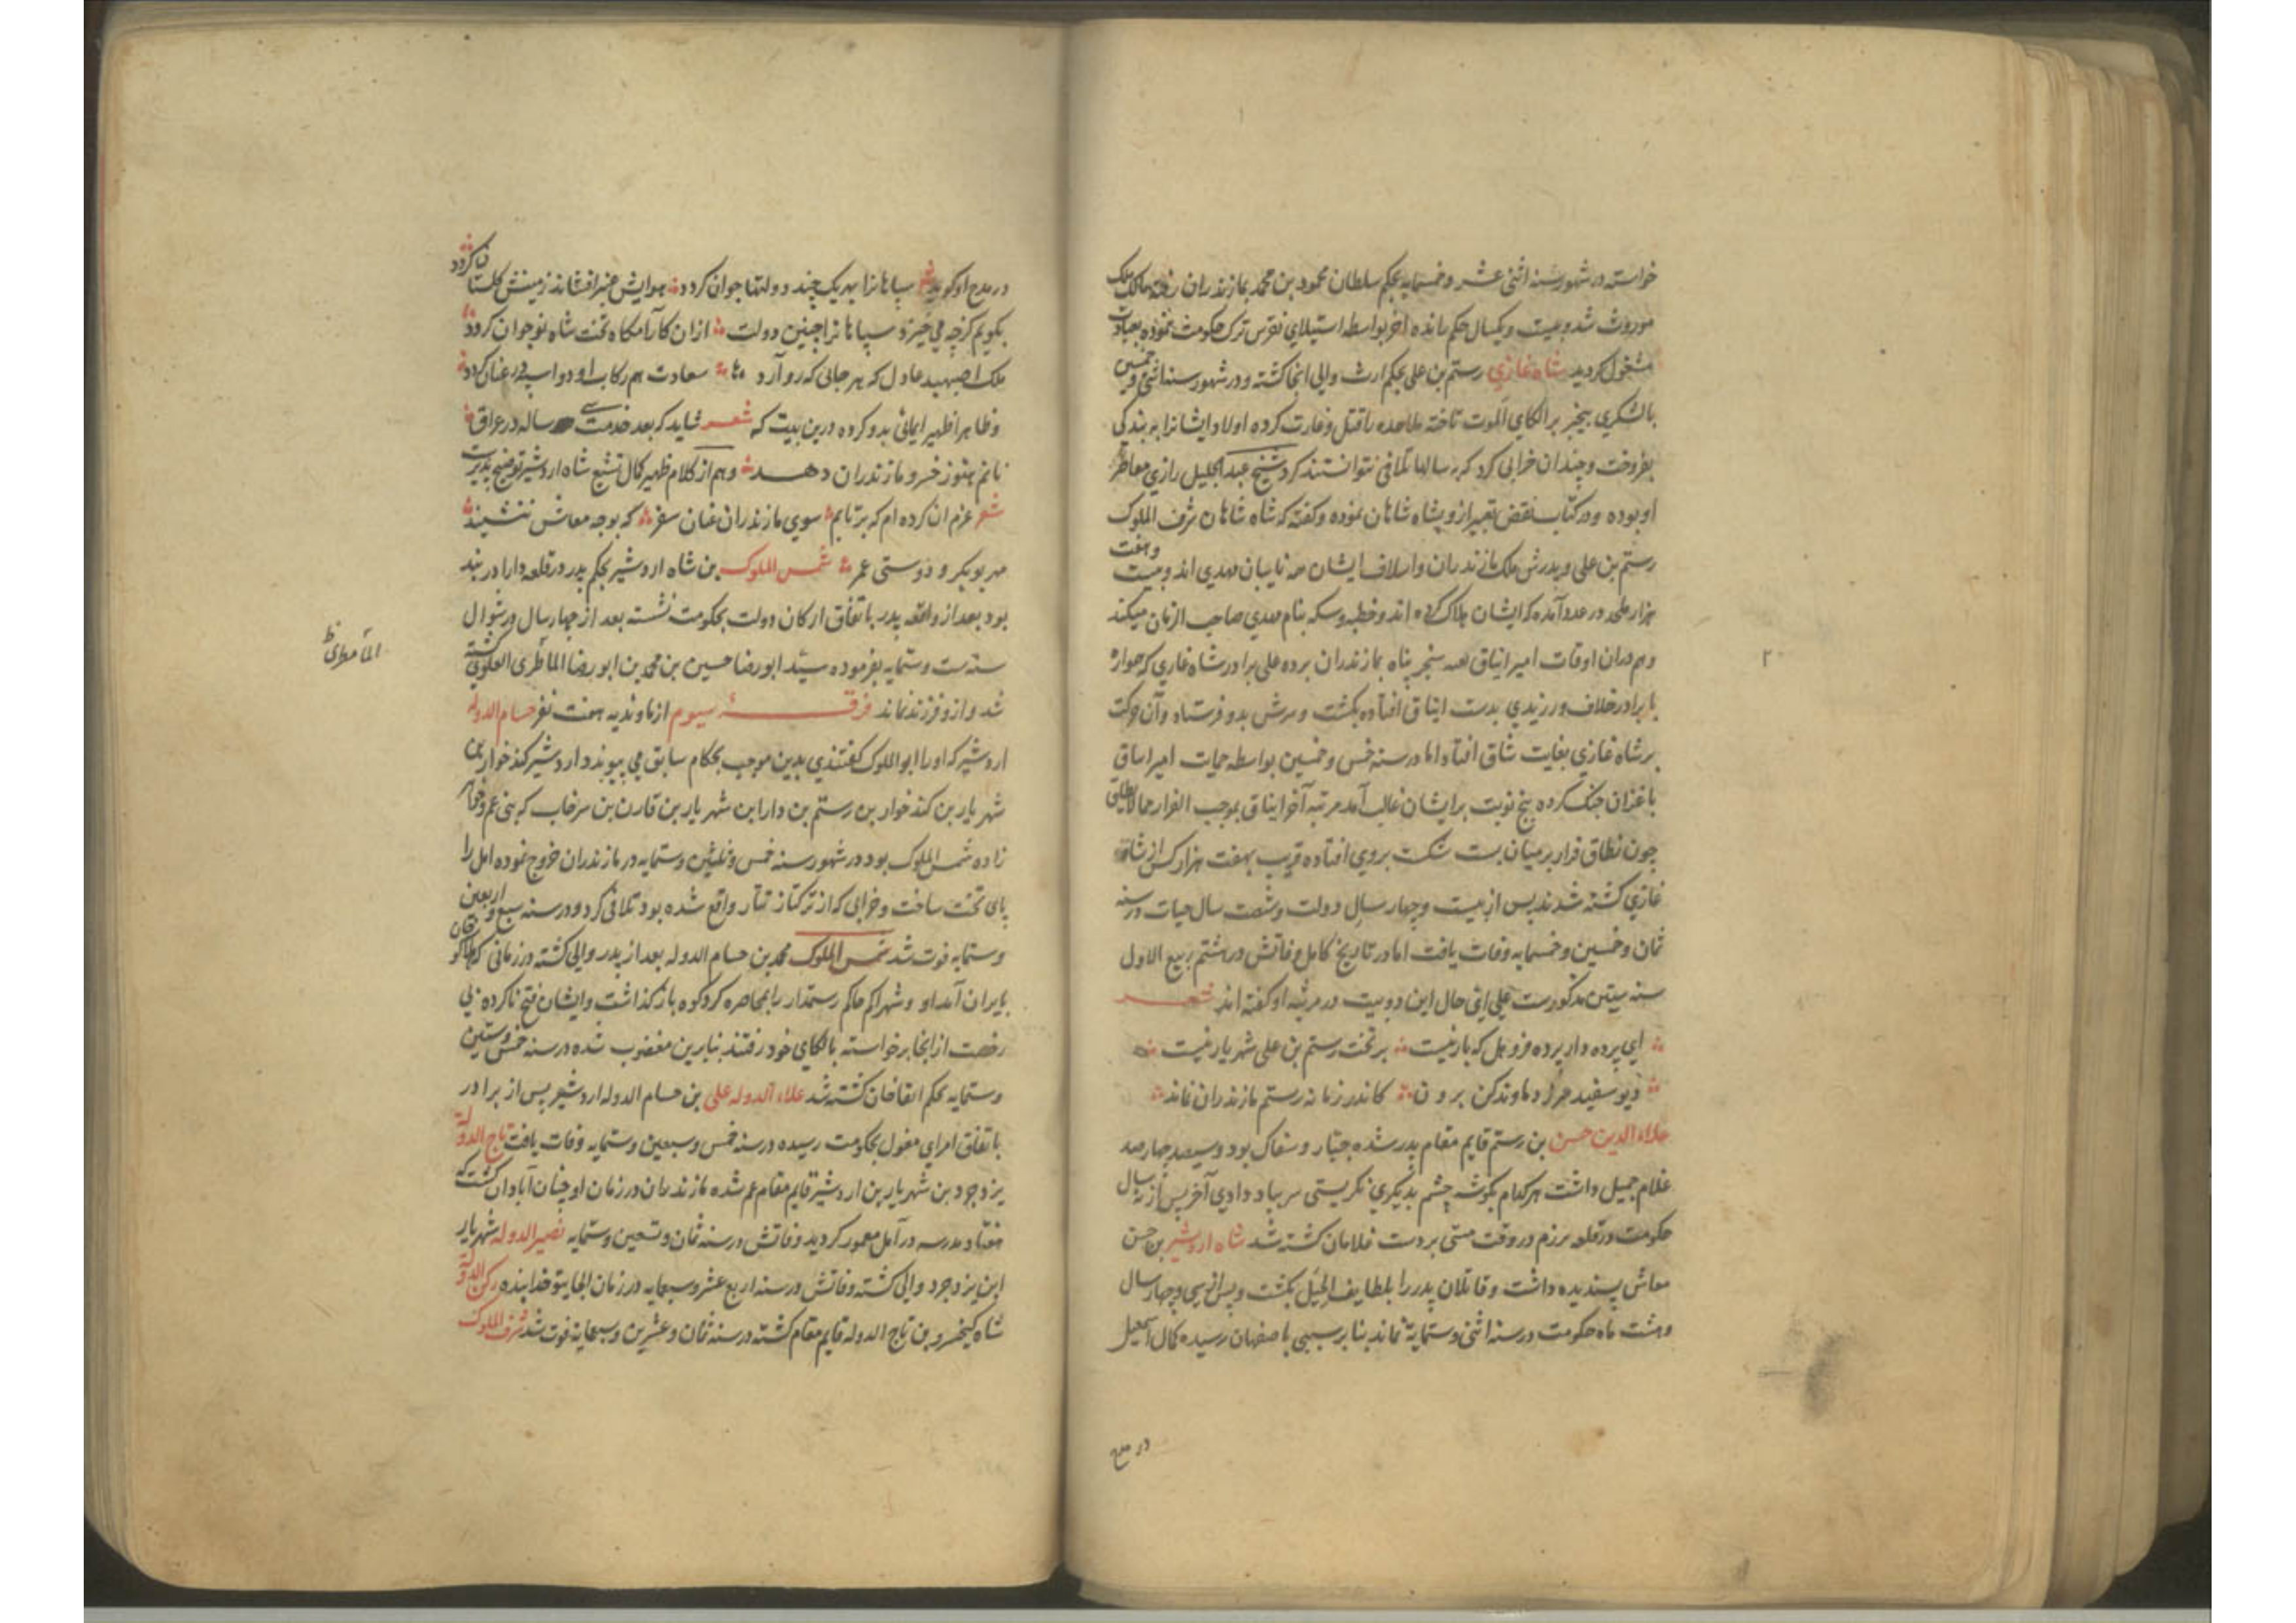 خواسته در شهور سنه اثنی عشر و خمسمایه بحکم سلطان محمود بن محمد بمازندران رفته مالک ملک
موروث شد و بیست و یکسال حکم رانده آخر بواسطه استیلای نقرس ترک حکومت نموده بعبادت
مشغول کردید شاه غازی رستم بن علی بحکم ارث والی انجا کشته و در شهور سنه اثنی و خمسین
با لشکری بیخبر بر الکای الموت تاخته ملاحده را قتل و غارت کرده اولاد ایشانرا به بندکی
بفروخت و چندان خرابی کرد که به سالها تلافی نتوانستند کرد شیخ عبد الجلیل رازی معاصر
او بوده و در کتاب نقض تعبیر ازو بشاه شاهان نموده و کفته که شاه شاهان شرف الملوک
رستم بن علی و پدرش ملک مازندران و اسلاف ایشان همه نایبان مهدی اند و بیست و هفت
هزار ملحد در عدد آمده که ایشان هلاک کرده اند و خطبه و سکه بنام مهدی صاحب الزمان میکنند
و هم دران اوقات امیر ایتاق سنجر پناه بمازندران برده علی برادر شاه غازی که همواره
با برادر خلاف ورزیدی بدست ایتاق افتاده بکشت و سرش بدو فرستاد و آن حرکت
بر شاه غازی بغایت شاق افتاد اما در سنه خمس و خمسین بواسطه حمایت امیر ایتاق
با غزان جنک کرده پنج نوبت بر ایشان غالب آمد مرتبه آخر ایتاق بموجب الفرار مما لا یطاق
چون نطاق فرار بر میان بست شکست بروی افتاده قریب بهفت هزار کس از شاه
غازی کشته شدند پس از بیست و چهار سال دولت و شصت سال حیات در سنه
ثمان و خمسین و خمسمایه وفات یافت اما در تاریخ کامل وفاتش در هشتم ربیع الاول
سنه ستین مذکورست علی ای حال این دو بیت در مرثیه او کفته اند شعر
ای پرده دار پرده فرو هل که بار نیست بر تخت رستم بن علی شهریار نیست
دیو سفید سر ز دماوند کن برون کاندر زمانه رستم مازندران نماند
علاء الدین حسن بن رستم قایم مقام پدر شده جبار و سفاک بود و سیصد چهارصد
غلام جمیل داشت هر کدام بکوشه چشم بدیکری نکریستی سر بباد دادی آخر پس از نه سال
حکومت در قلعه برزم در وقت مستی بر دست غلامان کشته شد شاه اردشیر بن حسن
معاش پسندیده داشت و قاتلان پدر را بلطایف الحیل بکشت و پس از سی و چهار سال
و هشت ماه حکومت در سنه اثنی و ستمایة نماند بنا بر سببی باصفهان رسیده کمال اسمعیل
در مدح
۲
در مدح او کوید شعر سپاهانرا بهر یک چند دولتها جوان کردد هوایش عنبر افشاند زمینش کلستان کردد
بکویم کز چه می خیزد سپاهانرا چنین دولت ازان کارامکاه تخت شاه نوجوان کردد
ملک اصبهبد عادل که هر جائی که رو آرد سعادت هم رکاب او دواسپه در عنان کردد
و ظاهرا ظهیر ایمائی بدو کرده درین بیت که شعر شاید که بعد خدمت سی ساله در عراق
نانم هنوز خسرو مازندران دهد و هم از کلام ظهیر کمال تشیع شاه اردشیر توضیح پذیرست
شعر عزم ان کرده ام که برتابم سوی مازندران عنان سفر که بوجه معاش ننشیند
مهر بوبکر و دوستی عمر شمس الملوک بن شاه اردشیر بحکم پدر در قلعه دارا در بند
بود بعد از واقعه پدر باتفاق ارکان دولت بحکومت نشسته بعد از چهار سال در شوال
سنه ست و ستمایه بفرموده سید ابو رضا حسین بن محمد بن ابو رضا المامطری العلوی کشته
شد و ازو فرزند نماند فرقه سیوم از باوندیه هفت نفر حسام الدوله
اردشیر که او را ابو الملوک کفتندی بدین موجب بحکام سابق می پیوندد اردشیر کندخوار بن
شهریار بن کندخوار بن رستم بن دارا بن شهریار بن قارن بن سرخاب که بنی عم و خواهر
زاده شمس الملوک بود در شهور سنه خمس و ثلثین و ستمایه در مازندران خروج نموده امل را
پای تخت ساخت و خرابی که از ترکتاز تتار واقع شده بود تلافی کرد و در سنه سبع و اربعین
و ستمایه فوت شد شمس الملوک محمد بن حسام الدوله بعد از پدر والی کشته در زمانی که هلاکو خان
بایران آمد او و شهراکم حاکم رستمدار را بمحاصره کردکوه بازکذاشت و ایشان فتح ناکرده بی
رخصت از انجا برخواسته بالکای خود رفتند بنابرین مغضوب شده در سنه خمس و ستین
و ستمایه بحکم اباقاخان کشته شد علاء الدوله علی بن حسام الدوله اردشیر پس از برادر
باتفاق امرای مغول بحکومت رسیده در سنه خمس و سبعین و ستمایه وفات یافت تاج الدوله
یزدجرد بن شهریار بن اردشیر قایم مقام عم شده مازندران در زمان او چنان آبادان کشت که
هفتاد مدرسه در آمل معمور کردید وفاتش در سنه ثمان و تسعین و ستمایه نصیر الدوله شهریار
ابن یزدجرد والی کشته وفاتش در سنه اربع عشر و سبعمایه در زمان الجایتو خدابنده رکن الدولة
شاه کیخسرو بن تاج الدوله قایم مقام کشته در سنه ثمان و عشرین و سبعمایة فوت شد شرف الملوک
المامطری ظ